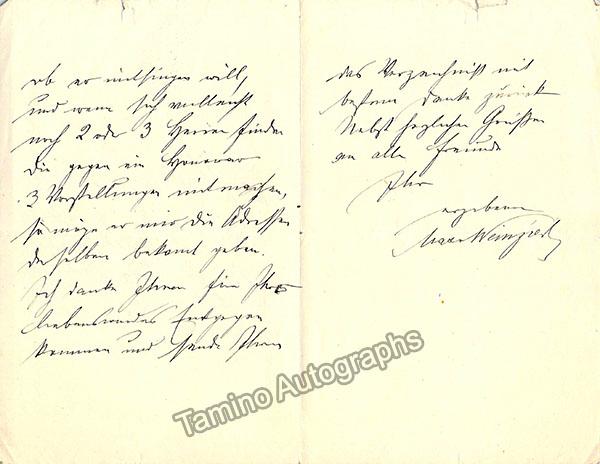 ob er mitsingen will,
und wenn sich vielleicht
noch 2 oder 3 Herren finden
die gegen ein Honorar
3 Vorstellungen mitmachen,
so möge er mir die Adressen
derselben bekannt geben.
Ich danke Ihnen für Ihr
liebenswürdiges Entgegen
kommen und sende Ihnen
das Verzeichniß mit
bestem Danke zurück
Nebst herzlichen Grüßen
an alle Freunde
Ihr
ergebener
Max Weinzierl
Tamino Autographs